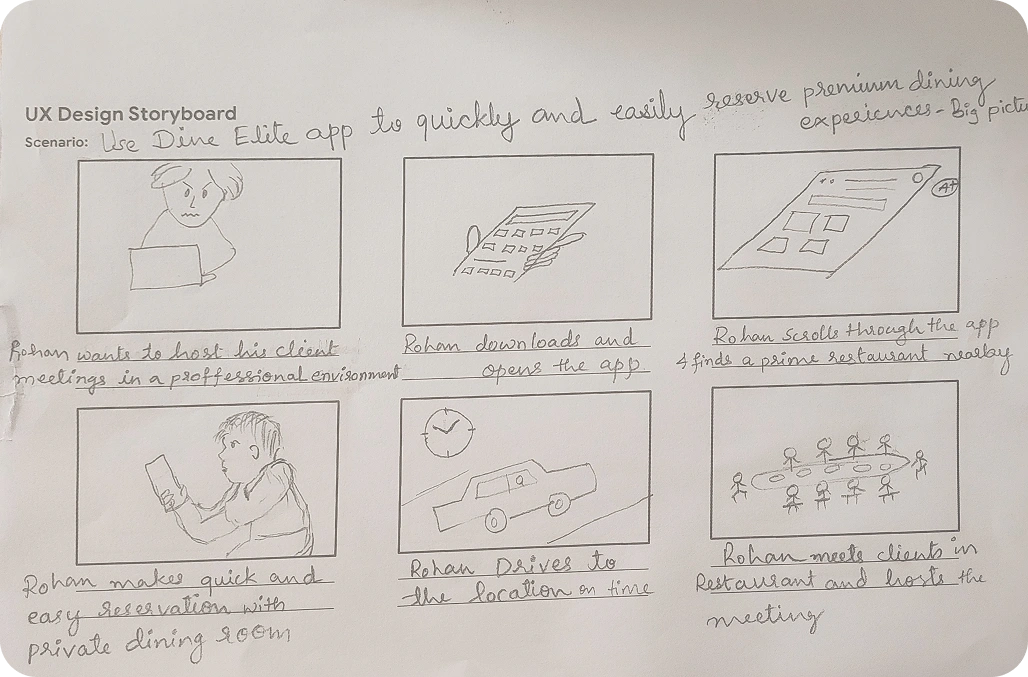 UX Design Storyboard
Scenario: Use Dine Elite app to quickly and easily reserve premium dining
experiences - Big pictu
A+
Rohan wants to host his client
meetings in a proffessional environment
Rohan downloads and
opens the app
Rohan Scrolls through the app
& finds a prime restaurant nearby
Rohan makes quick and
easy reservation with
private dining room
Rohan Drives to
the location on time
Rohan meets clients in
Restaurant and hosts the
meeting